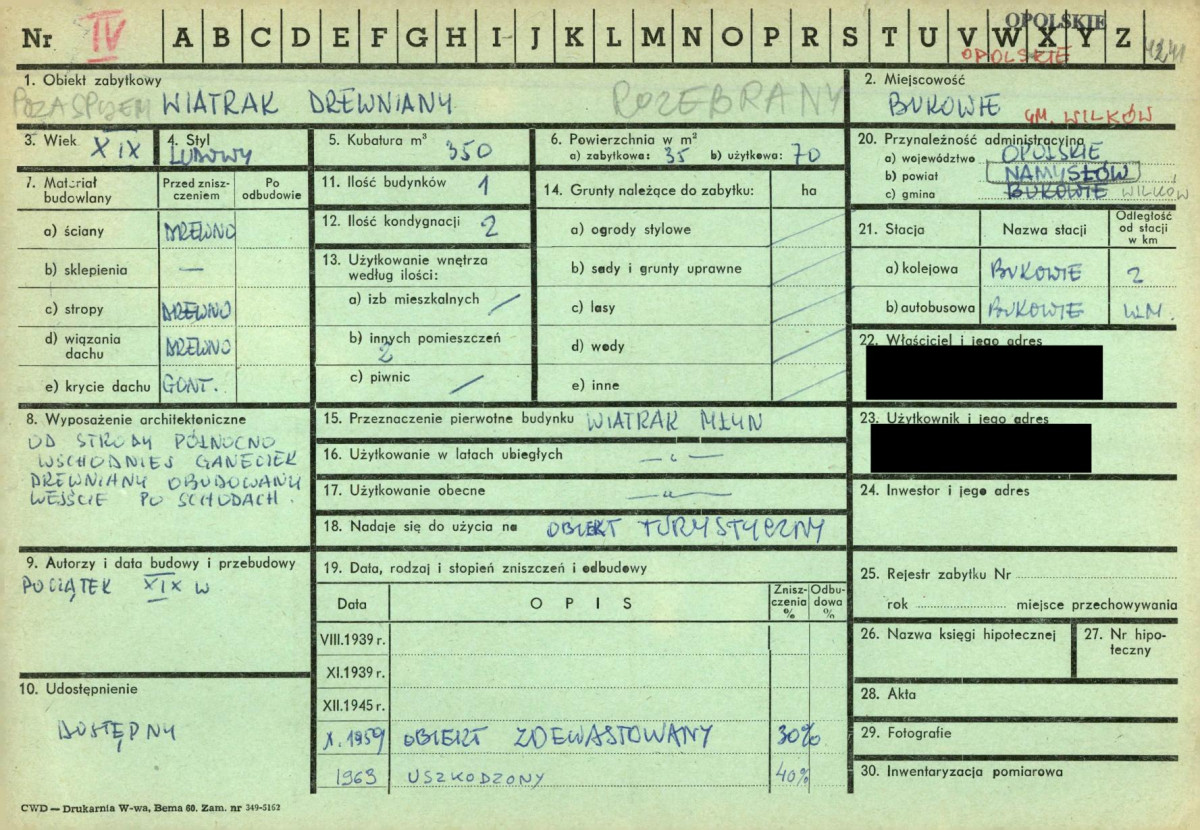 OPOLSKIE
Nr IV A B C D E F G H I J K L M N O P R S T U V W X Y Z
OPOLSKIE
1. Obiekt zabytkowy
POZA SPISEM WIATRAK DREWNIANY ROZEBRANY
2. Miejscowość
BUKOWIE GM. WILKÓW
3. Wiek XIX
4. Styl LUDOWY
5. Kubatura m³ 350
6. Powierzchnia w m²
a) zabytkowa: 35 b) użytkowa: 70
20. Przynależność administracyjna
a) województwo OPOLSKIE
b) powiat NAMYSŁÓW
c) gmina BUKOWIE WILKÓW
7. Materiał budowlany
Przed zniszczeniem
Po odbudowie
a) ściany DREWNO
b) sklepienia —
c) stropy DREWNO
d) wiązania dachu DREWNO
e) krycie dachu GONT.
11. Ilość budynków 1
12. Ilość kondygnacji 2
13. Użytkowanie wnętrza
według ilości:
a) izb mieszkalnych /
b) innych pomieszczeń
2
c) piwnic /
14. Grunty należące do zabytku: ha
a) ogrody stylowe
b) sady i grunty uprawne
c) lasy
d) wody
e) inne
21. Stacja Nazwa stacji Odległość od stacji w km
a) kolejowa BUKOWIE 2
b) autobusowa BUKOWIE
22. Właściciel i jego adres
23. Użytkownik i jego adres
24. Inwestor i jego adres
8. Wyposażenie architektoniczne
OD STRONY PÓŁNOCNO
WSCHODNIEJ GANECZEK
DREWNIANY OBUDOWANY
WEJŚCIE PO SCHODACH.
15. Przeznaczenie pierwotne budynku WIATRAK MŁYN
16. Użytkowanie w latach ubiegłych —„—
17. Użytkowanie obecne —„—
18. Nadaje się do użycia na OBIEKT TURYSTYCZNY
9. Autorzy i data budowy i przebudowy
POCZĄTEK XIX W
10. Udostępnienie
DOSTĘPNY
19. Data, rodzaj i stopień zniszczeń i odbudowy
Data OPIS Zniszczenia % Odbudowa %
VIII.1939 r.
XI.1939 r.
XII.1945 r.
X. 1959 OBIEKT ZDEWASTOWANY 30%
1963 USZKODZONY 40%
25. Rejestr zabytku Nr
rok miejsce przechowywania
26. Nazwa księgi hipotecznej
27. Nr hipoteczny
28. Akta
29. Fotografie
30. Inwentaryzacja pomiarowa
CWD — Drukarnia W-wa, Bema 60. Zam. nr 349-5162